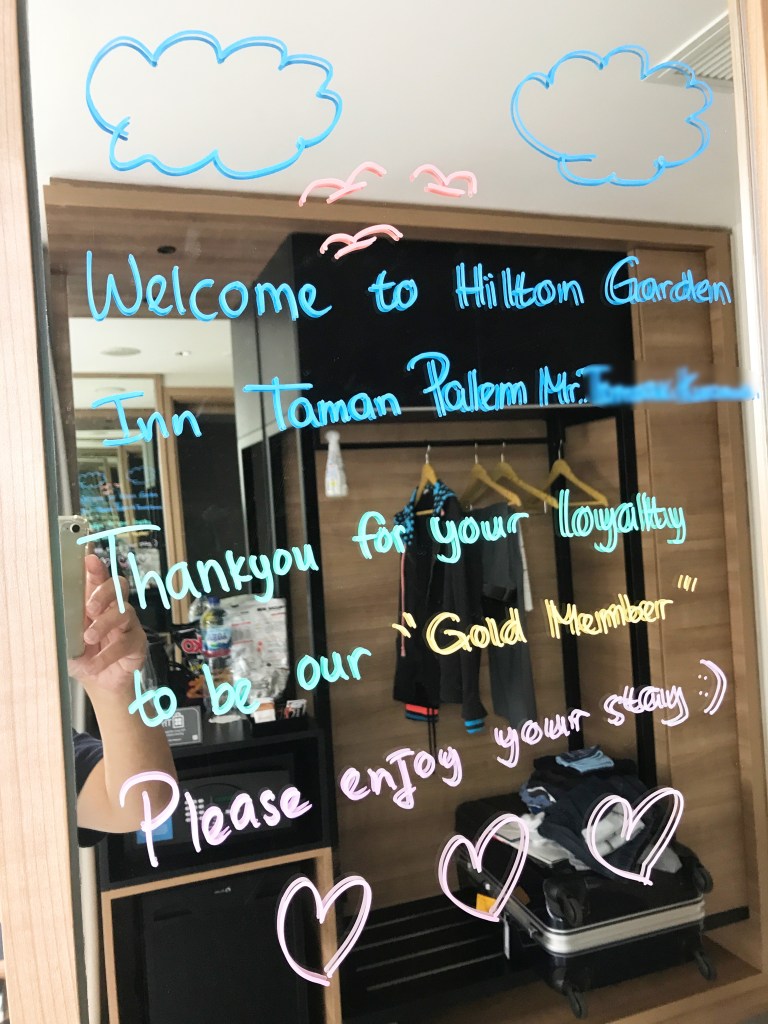 Welcome to Hilton Garden
Inn Taman Palem Mr.
Thankyou for your loyalty
to be our "Gold Member"
Please enjoy your stay :)